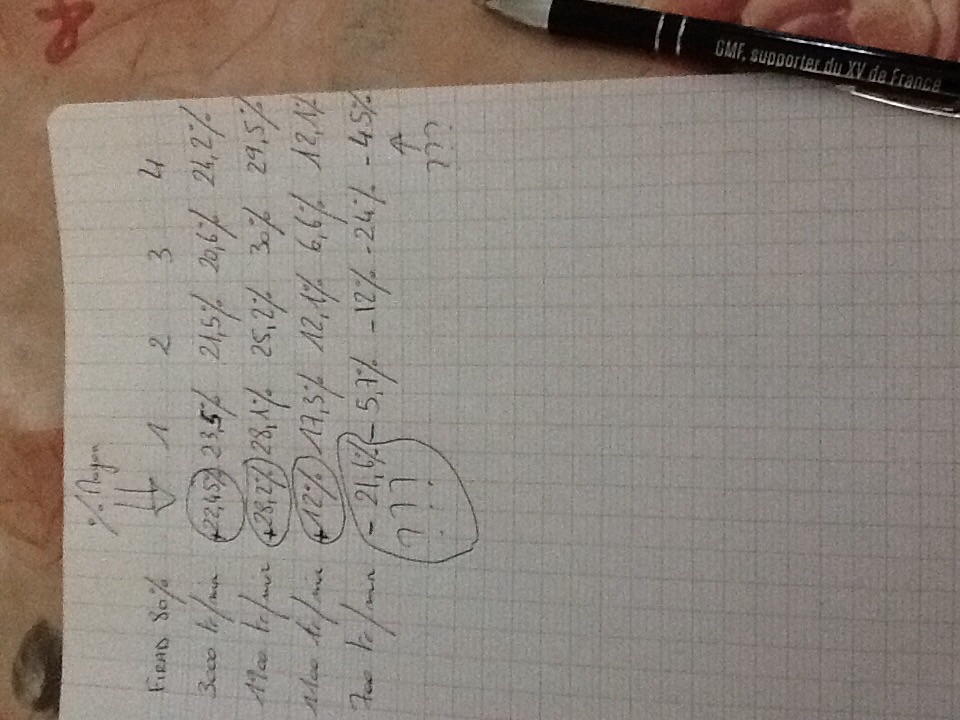 GMF, supporter du XV de France
% Moyen
FIRAD 80% 1 2 3 4
3000 tr/min +22,45% 23,5% 21,5% 20,6% 24,2%
1900 tr/min +28,2% 28,1% 25,2% 30% 29,5%
1100 tr/min +12% 17,3% 12,1% 6,6% 12,1%
700 tr/min -21,6% -5,7% -12% -24% -45%
??? ???